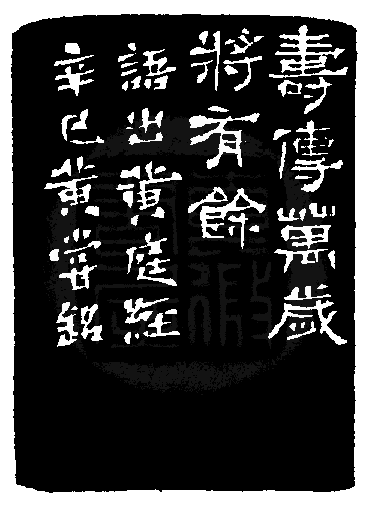 壽傳萬歲
將有餘
語出黃庭經
辛巳黃嘗銘